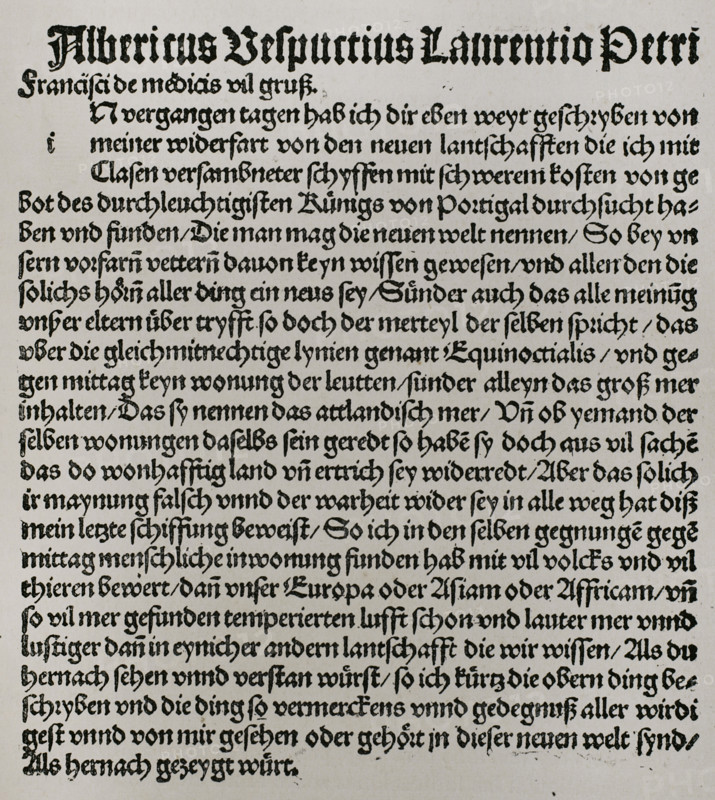 Albericus Vespuctius Laurentio Petri
Francisci de medicis vil gruß.
N vergangen tagen hab ich dir eben weyt geschryben von
i meiner widerfart von den neuen lantschafften die ich mit
Clasen versambneter schyffen mit schwerem kosten von ge
bot des durchleuchtigisten Künigs von Portigal durchsucht ha⸗
ben vnd funden/Die man mag die neuen welt nennen/ So bey vn
sern vorfarn̄ vettern̄ dauon keyn wissen gewesen/vnd allen den die
solichs hörn̄ aller ding ein neus sey/Sünder auch das alle meinūg
vnßer eltern über tryfft so doch der merteyl der selben spricht/das
vber die gleichmitnechtige lynien genant Equinoctialis/vnd ge⸗
gen mittag keyn wonung der leutten/sünder alleyn das groß mer
inhalten/Das sy nennen das attlandisch mer/ Vn̄ ob yemand der
selben wonungen daselbs sein geredt so habē sy doch aus vil sachē
das do wonhafftig land vn̄ ertrich sey widerredt/Aber das solich
ir maynung falsch vnnd der warheit wider sey in alle weg hat diß
mein letzte schiffung beweist/ So ich in den selben gegnungē gegē
mittag menschliche inwonung funden hab mit vil volcks vnd vil
thieren bewert/dan̄ vnser Europa oder Asiam oder Affricam/vn̄
so vil mer gefunden temperierten lufft schon vnd lauter mer vnnd
lustiger dan̄ in eynicher andern lantschafft die wir wissen/Als du
hernach sehen vnnd verstan würst/so ich kürtz die obern ding be⸗
schryben vnd die ding so vermerckens vnnd gedegnuß aller wirdi
gest vnnd von mir gesehen oder gehört jn dieser neuen welt synd/
Als hernach gezeygt würt.